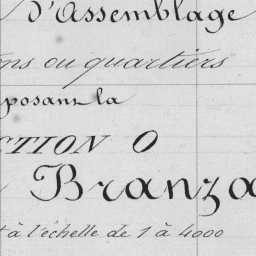 d'Assemblage
ons ou quartiers
posant la
CTION O
Branza
t à l'échelle de 1 à 4000